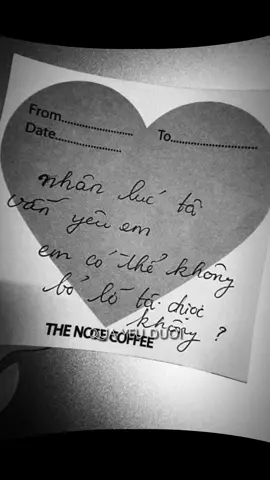 From.......................
To..........................
Date.....................
nhân lúc ta
vẫn yêu em
em có thể không
bỏ lỡ ta được
không ?
THE NOTE COFFEE